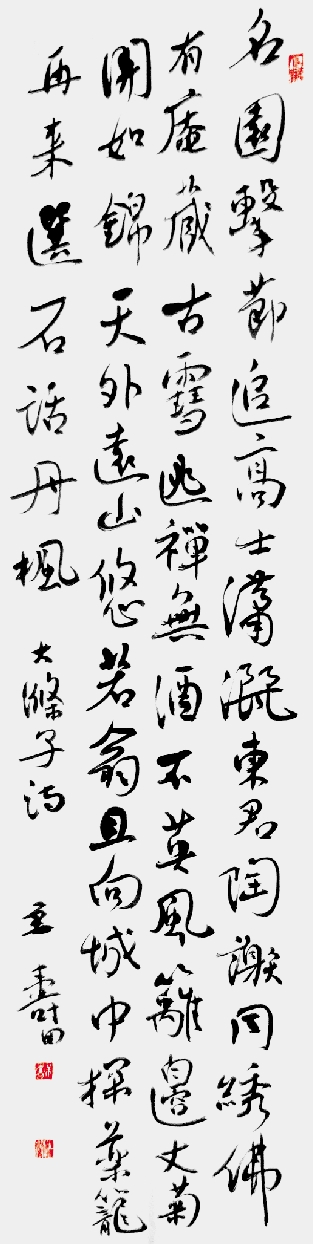 名園擊節追高士瀟灑東君陶謝同綉佛
有庵藏古雪逃禪無酒不英風籬邊丈菊
開如錦天外遠山悠若翁且向城中探藥籠
再来選石話丹楓
大滌子詩